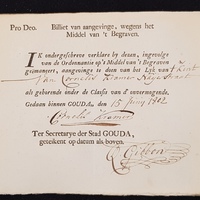 Pro Deo. Billiet van aangevinge, wegens het
Middel van 't Begraven.
IK ondergeschreve verklare by dezen, ingevolge
van de Ordonnantie op 't Middel van 't Begraven
geëmaneert, aangevinge te doen van het Lyk van 't Kint
van Cornelis Kramer
als gehorende onder de Classis van d' onvermogende.
Gedaan binnen GOUDA, den 15 Juny 1802
Cornelis Kramer
Ter Secretarye der Stad GOUDA,
geteekent op datum als boven.